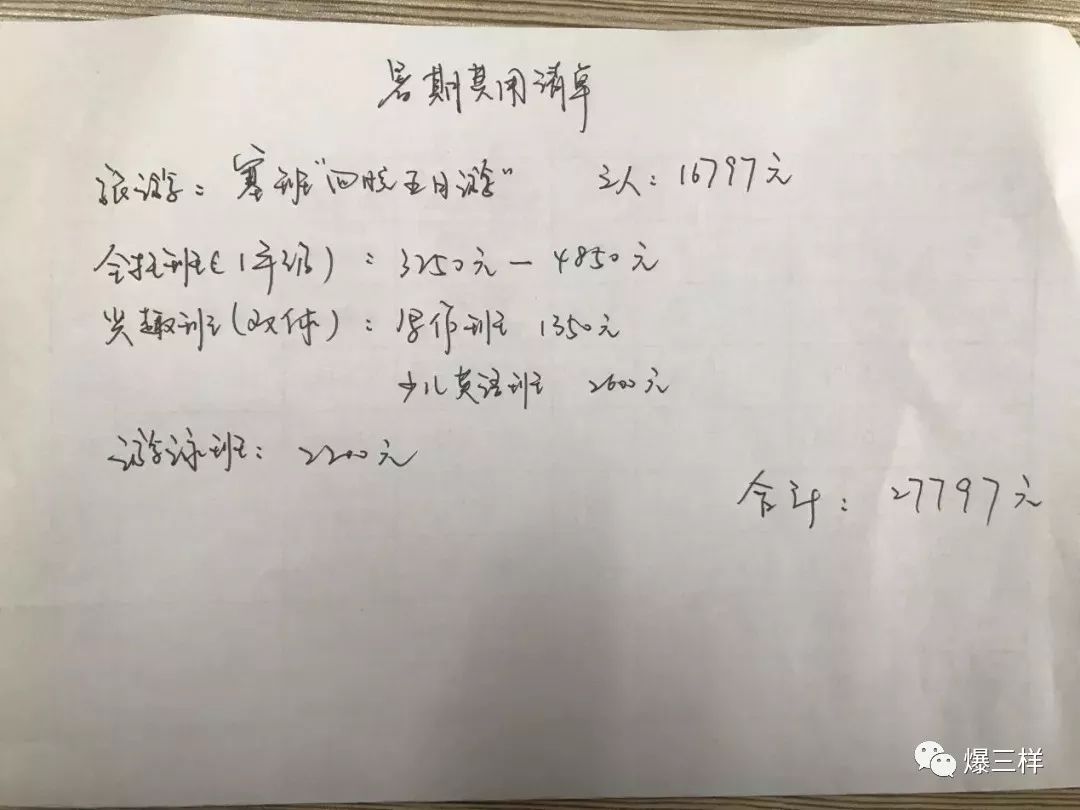 暑期费用清单
旅游：塞班"四晚五日游" 三人：16797元
全托班（1年级）：3250元—4850元
兴趣班（双休）：写作班 1350元
少儿英语班 2600元
游泳班：2200元
合计：27797元
爆三样